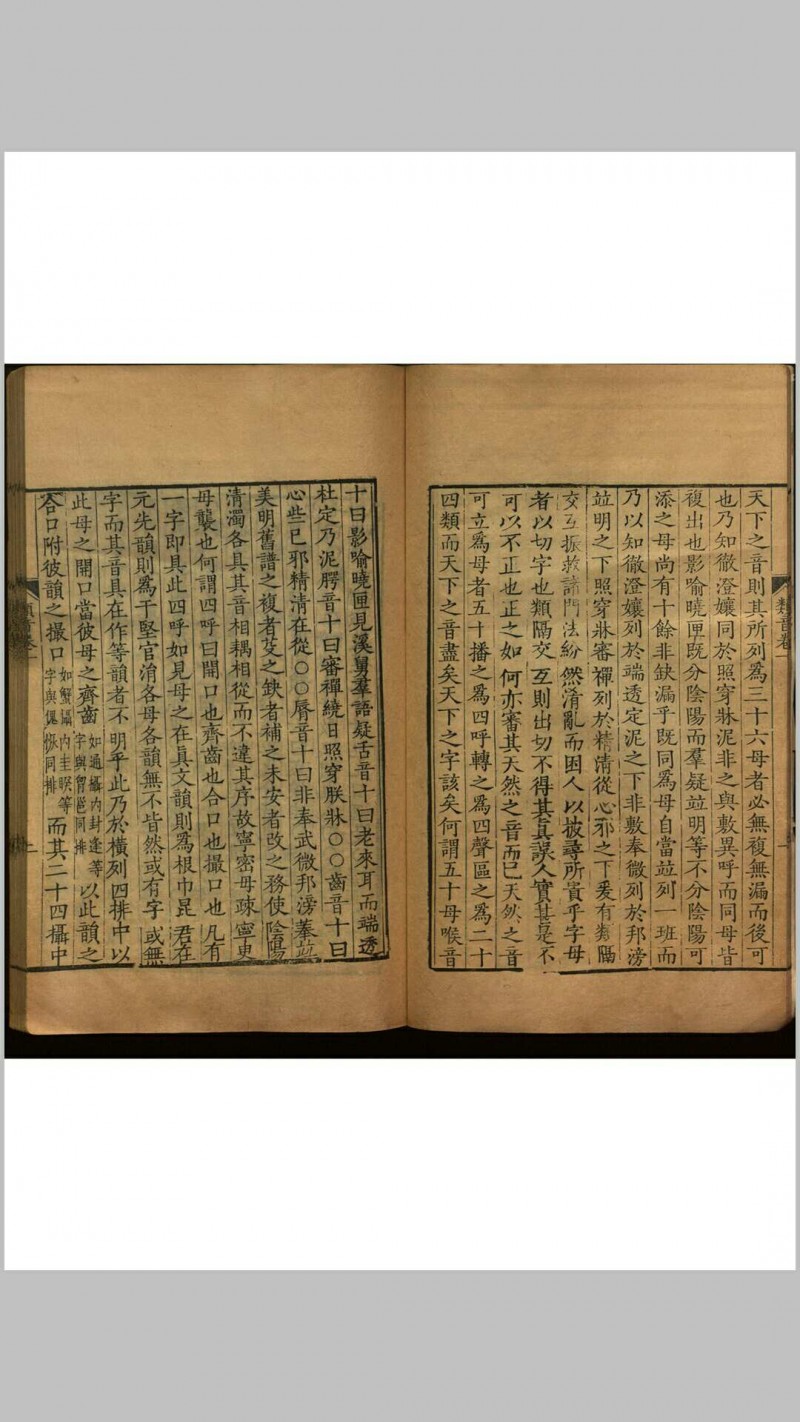 天下之音則其所列爲三十六母者必無複無漏而後可
也乃知徹澄孃同於照穿牀泥非之與敷異呼而同母皆
複出也影喻曉匣既分陰陽而羣疑竝明等不分陰陽可
添之母尚有十餘非缺漏乎既同爲母自當竝列一班而
乃以知徹澄孃列於端透定泥之下非敷奉微列於邦滂
竝明之下照穿牀審禪列於精清從心邪之下爰有類隔
交互振救諸門法紛然淆亂而困人以披尋所貴乎字母
者以切字也類隔交互則出切不得其真誤人實甚是不
可以不正也正之如何亦審其天然之音而已天然之音
可立爲母者五十播之爲四呼轉之爲四聲區之爲二十
四類而天下之音盡矣天下之字該矣何謂五十母喉音
類音卷一
十曰影喻曉匣見溪舅羣語疑舌音十曰老來耳而端透
杜定乃泥腭音十曰審禪繞日照穿朕牀〇〇齒音十曰
心些巳邪精清在從〇〇脣音十曰非奉武微邦滂菶竝
美明舊譜之複者芟之缺者補之未安者改之務使陰陽
清濁各具其音相耦相從而不違其序故寧密毋疎寧更
毋襲也何謂四呼曰開口也齊齒也合口也撮口也凡有
一字即具此四呼如見母之在真文韻則爲根巾昆君在
元先韻則爲干堅官涓各母各韻無不皆然或有字或無
字而其音具在作等韻者不明乎此乃於橫列四排中以
此母之開口當彼母之齊齒如通攝内封逢等字與胷邕同排以此韻之
合口附彼韻之撮口如蟹攝内圭睽等字與同排而其二十四攝中